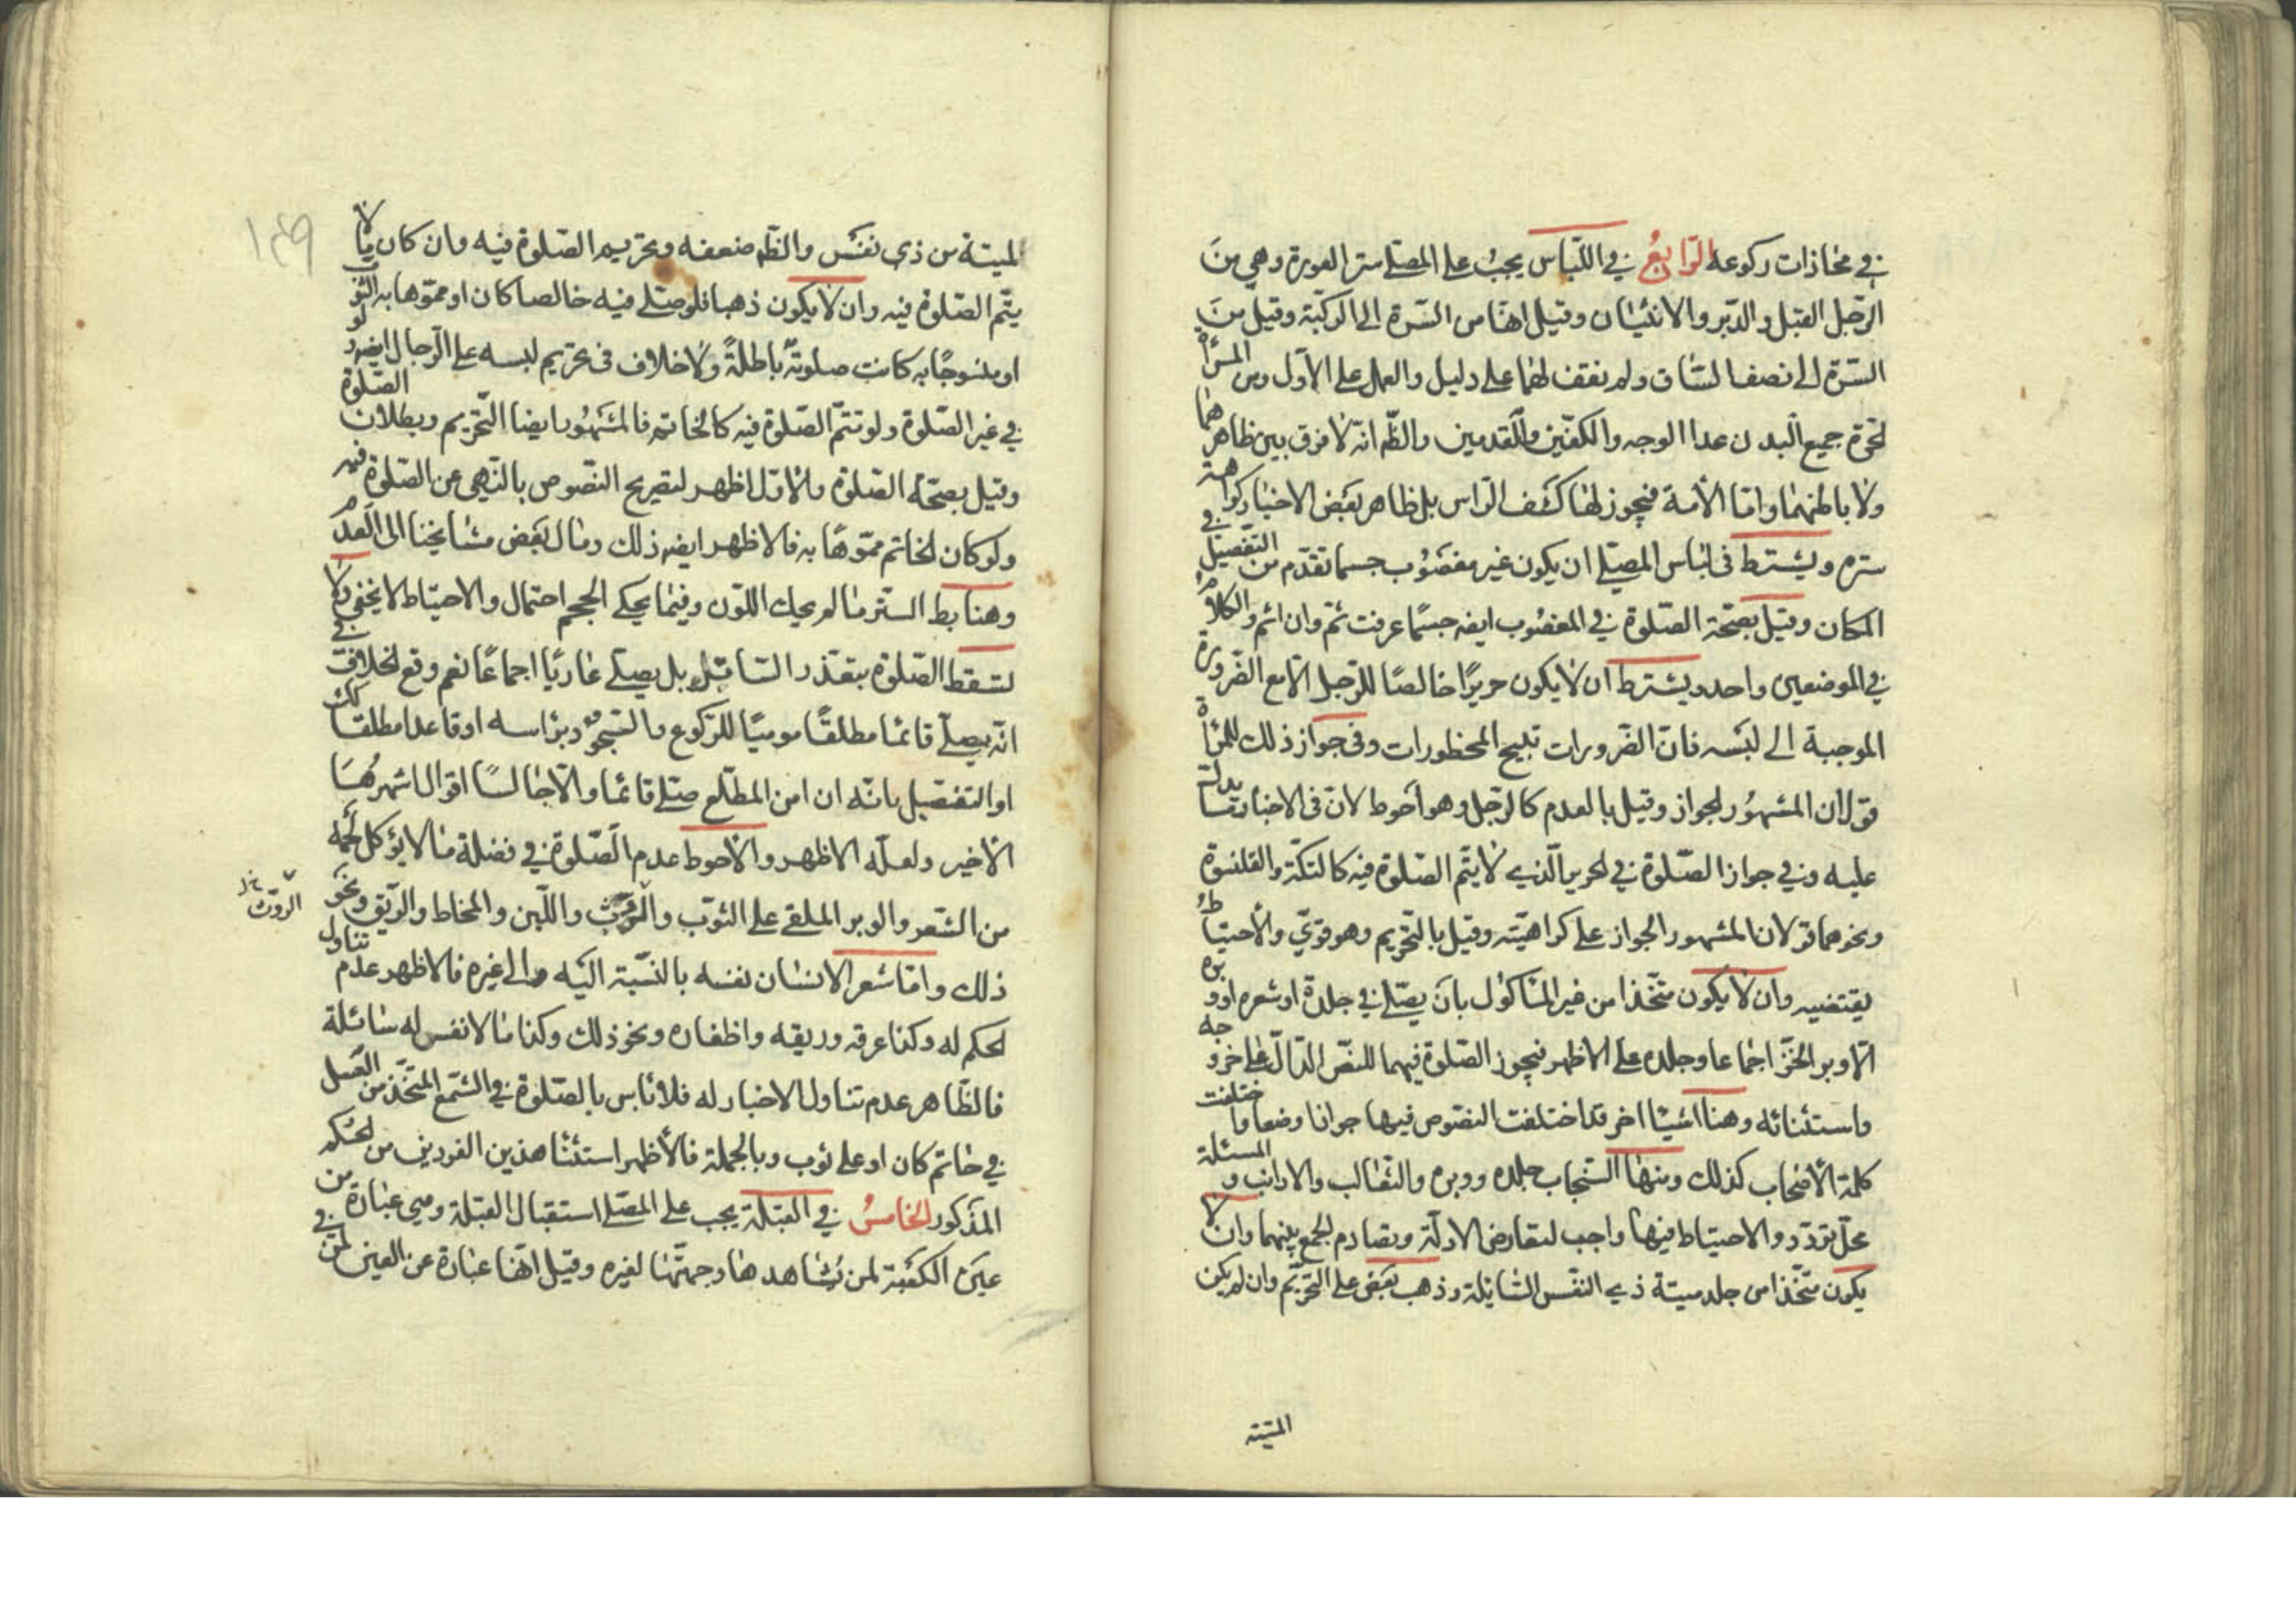 في محاذات ركوعه الرّابعُ في اللّباس يجبُ على المصلّي ستر العورة وهي منَ
الرّجل القبل والدّبر والانثيان وقيل انها من السّرة الى الركبّة وقيل منَ
السّرة الى نصف السّاق ولم نقف لهما على دليل والعمل على الاوّل ومن المرأة
الحرّة جميع البدن عدا الوجه والكفّين والقدمين والظّ انّه لا فرق بين ظاهرهما
ولا باطنهما وامّا الأمة فيجوز لها كشف الرّاس بل ظاهر بعض الاخبار كراهة
ستره ويشترط في لباس المصلّي ان يكون غير مغصُوب حسبما تقدّم من التّفصيل في
المكان وقيل بصحّة الصّلوة في المغصُوب ايضه حسبما عرفت ثم وان اثم والكلام
في الموضعين واحد ويشترط ان لا يكون حريرًا خالصًا للرّجل الّا مع الضّرورة
الموجبة الى لبسه فانّ الضّرورات تبيح المحظورات وفي جواز ذلك للمرأة
قولان المشهُور الجواز وقيل بالعدم كالرّجل وهو أحوط لانّ في الاخبار دلالة
عليه وفي جواز الصّلوة في الحرير الّذي لا يتمّ الصّلوة فيه كالتكّة والقلنسوة
ونحوهما قولان المشهور الجواز على كراهيّته وقيل بالتّحريم وهو قويّ والأحتياط
يقتضيه وان لا يكون متّخذا من غير المأكول بان يصلّي في جلدة او شعره او وبره
الّا وبر الخزّ اجماعا وجلده على الاظهر فيجوز الصّلوة فيهما للنصّ الدّالّ على خروجه
واستثنائه وهنا اشيأ اخر قد اختلفت النصّوص فيها جوازا ومنعا واختلفت
كلمة الأصحاب كذلك ومنها السّنجاب جلده ووبره والثّعالب والارانب والمسئلة
محلّ تردّد والاحتياط فيها واجب لتعارض الادلّة وتصادم الجمع بينهما وان لا
يكون متّخذا من جلد ميتة ذي النفس السّايلة وذهب بعض على التّحريم وان لم يكن
الميتة
١٣٩
الميتة من ذي نفس والظّ ضعفه وتحريم الصّلوة فيه وان كان ممّا لا
يتّم الصّلوة فيه وان لا يكون ذهبا فلو صلّى فيه خالصا كان او مموّها به الثوب
او منسوجًا به كانت صلوته باطلةً ولا خلاف في تحريم لبسه على الرّجال ايضه ولو
في غير الصّلوة ولو تتمّ الصّلوة فيه كالخاتم فالمشهُور ايضا التّحريم وبطلان الصّلوة
وقيل بصحّة الصّلوة والاوّل اظهر لتصريح النّصوص بالنّهي عن الصّلوة فيه
ولو كان الخاتم مموّهًا به فالاظهر ايضه ذلك ومال بعض مشايخنا الى العدم
وهنا بط السّتر ما لم يحك اللّون وفيما يحكي الحجم احتمال والاحتياط لا يخفى ولا
تسقط الصّلوة بتعذر السّاتر بل يصلّي عاريًا اجماعًا نعم وقع الخلاف في
انّه يصلّي قائما مطلقًا موميًا للرّكوع والسّجود براسه او قاعدا مطلقا كك
او التفصيل بانّه ان امن المطلع صلّى قائما والّا جالسًا اقوال اشهرُها
الاخير ولعلّه الاظهر والأحوط عدم الصّلوة في فضلة ما لا يؤكل لحمه
من الشّعر والوبر الملقى على الثوب والرّوث واللّبن والمخاط والرّيق ونحو
الروث
ذلك وامّا شعر الانسان نفسه بالنسبّة اليه والى غيره فالاظهر عدم تناول
الحكم له وكذا عرقه وريقه واظفاره ونحو ذلك وكذا ما لا نفس له سائلة
فالظّاهر عدم تناول الاخبار له فلا بأس بالصّلوة في الشّمع المتّخذ من العسل
في خاتم كان او على ثوب وبالجملة فالأظهر استثنأ هذين الفردين من الحكم
المذكور الخامسُ في القبلة يجب على المصلّي استقبال القبلة وهي عبارة من
عين الكعبة لمن يشاهدها وجهتها لغيره وقيل انّها عبارة عن العين لمن في